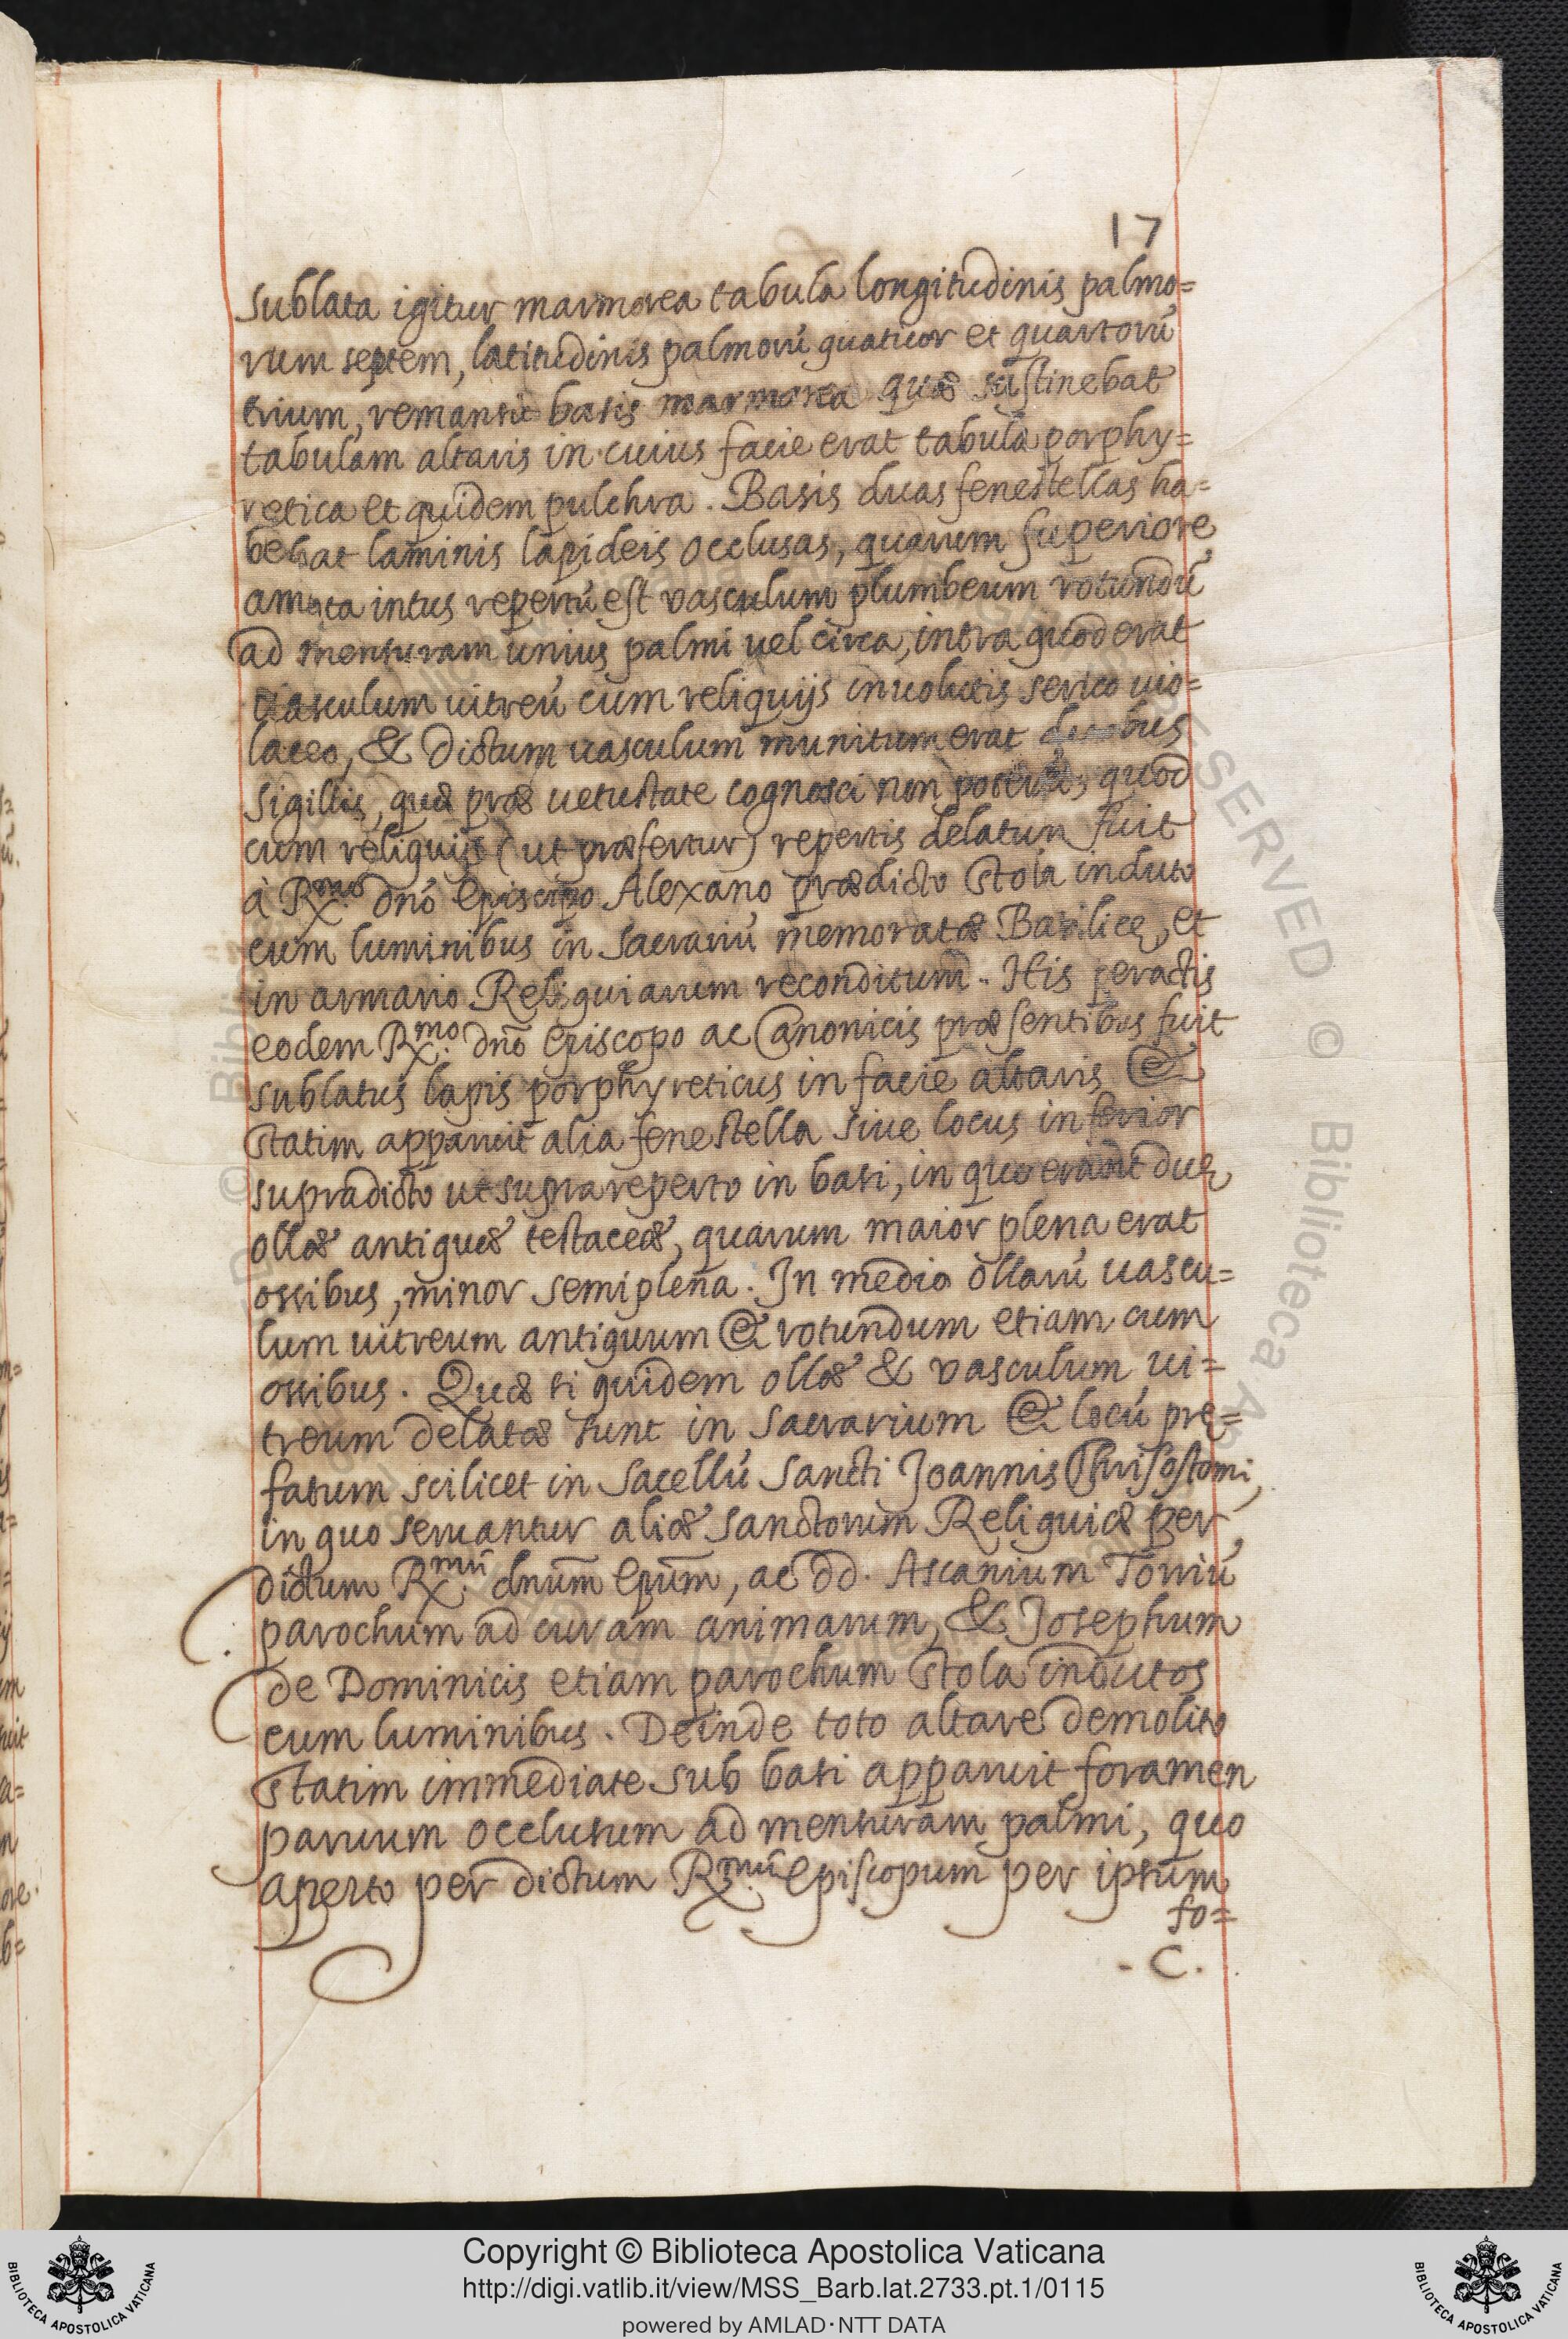 17
Sublata igitur marmorea tabula longitudinis palmo=
rum septem, latitudinis palmorū quatuor et quartorū
trium, remansit basis marmorea quæ sustinebat
tabulam altaris in cuius facie erat tabula porphy=
retica et quidem pulchra. Basis duas fenestellas ha=
bebat laminis lapideis occlusas, quarum superiore
amota intus repertū est vasculum plumbeum rotundū
ad mensuram unius palmi uel circa, intra quod erat
uasculum uitreū cum reliquijs inuolutis serico uio=
laceo, & dictum uasculum munitum erat duobus
sigillis, quæ præ uetustate cognosci non poterāt, quod
cum reliquijs (ut præfertur) repertis delatum fuit
à Rx.mo dnō Episcopo Alexano prædicto stola induto
cum luminibus in sacrariū memoratæ Basilicę, et
in armario Reliquiarum reconditum. His peractis
eodem Rx.mo dnō Episcopo ac Canonicis præsentibus fuit
sublatus lapis porphyreticus in facie altaris &
statim apparuit alia fenestella siue locus inferior
supradicto ut supra reperto in basi, in quo erant duę
ollæ antiquæ testaceæ, quarum maior plena erat
ossibus, minor semiplena. In medio ollarū uascu=
lum uitreum antiquum & rotundum etiam cum
ossibus. Quæ si quidem ollæ & vasculum ui=
treum delatæ sunt in sacrarium & locū prę=
fatum scilicet in sacellū Sancti Joannis Chrisostomi,
in quo seruantur aliæ sanctorum Reliquiæ per
dictum Rx.mū dnūm Epūm, ac dd. Ascanium Torriū
parochum ad curam animarum, & Josephum
de Dominicis etiam parochum stola indutos
cum luminibus. Deinde toto altare demolito
statim immediate sub basi apparuit foramen
paruum occlusum ad mensuram palmi, quo
aperto per dictum Rx.mū Episcopum per ipsum
fo=
- C.
Copyright © Biblioteca Apostolica Vaticana
http://digi.vatlib.it/view/MSS_Barb.lat.2733.pt.1/0115
powered by AMLAD·NTT DATA
BIBLIOTECA APOSTOLICA VATICANA
BIBLIOTECA APOSTOLICA VATICANA